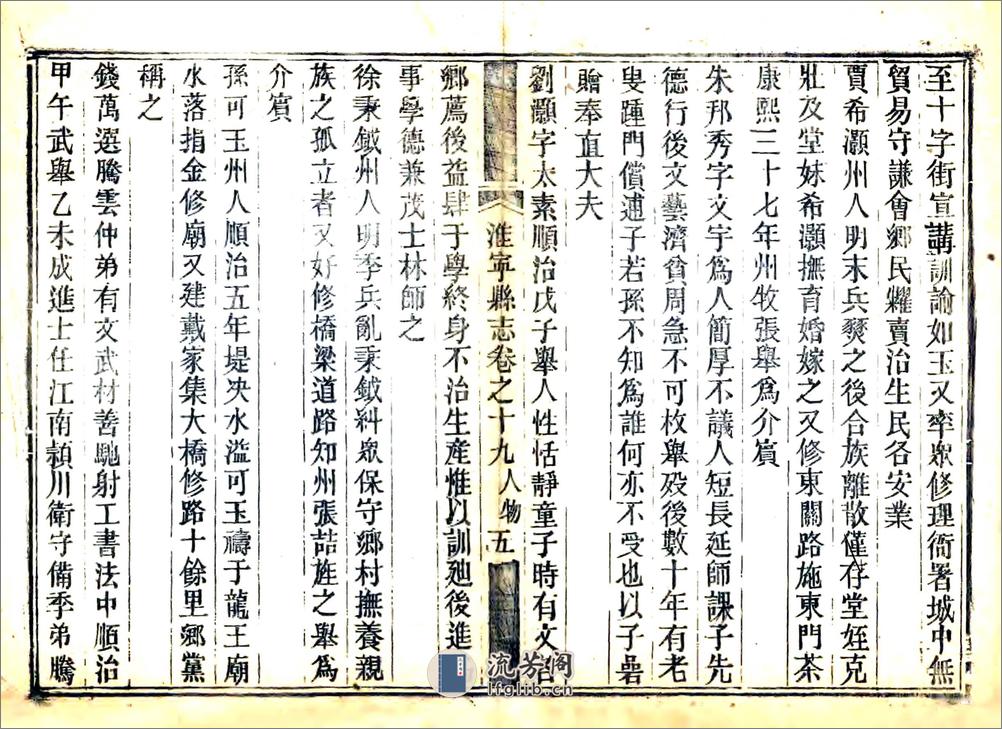 至十字街宣講訓諭如玉又率眾修理衙署城中無
貿易守謙會鄉民糶賣治生民各安業
賈希灝州人明末兵燹之後合族離散僅存堂姪克
壯及堂妹希灝撫育婚嫁之又修東關路施東門茶
康熙三十七年州牧張舉為介賓
朱邦秀字文宇為人簡厚不議人短長延師課子先
德行後文藝濟貧周急不可枚舉歿後數十年有老
叟踵門償逋子若孫不知為誰何亦不受也以子
贈奉直大夫
劉灝字太素順治戊子舉人性恬靜童子時有文名
淮寧縣志卷之十九人物 五
鄉薦後益肆于學終身不治生產惟以訓廸後進
事學德兼茂士林師之
徐秉鉞州人明季兵亂秉鉞糾眾保守鄉村撫養親
族之孤立者又好修橋梁道路知州張喆旌之舉為
介賓
孫可玉州人順治五年堤决水溢可玉禱于龍王廟
水落捐金修廟又建戴家集大橋修路十餘里鄉黨
稱之
錢萬選騰雲仲弟有文武材善馳射工書法中順治
甲午武舉乙未成進士任江南潁川衛守備季弟騰
流芳閣
lfglib.cn